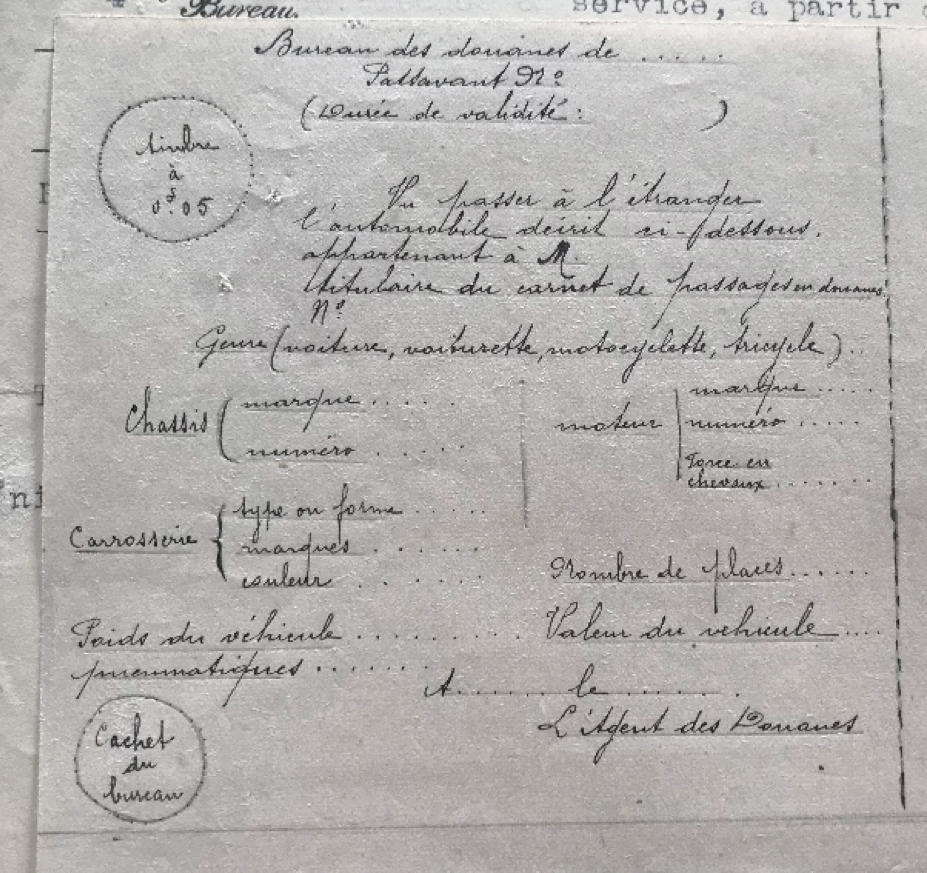 Bureau.
service, à partir
Bureau des douanes de .....
Passavant No
(Durée de validité : )
timbre
à
0f.05
Vu passer à l'étranger
l'automobile décrit ci-dessous,
appartenant à M.
titulaire du carnet de passages en douanes
No
Genre (voiture, voiturette, motocyclette, tricycle) ..
Chassis
marque .....
numéro .....
moteur
marque .....
numéro .....
Force en
chevaux .......
Carrosserie
type ou forme .....
marques ......
couleur ......
Nombre de places ......
Poids du véhicule ........
Valeur du véhicule ....
pneumatiques .......
A ...... le .......
L'Agent des Douanes
Cachet
du
bureau